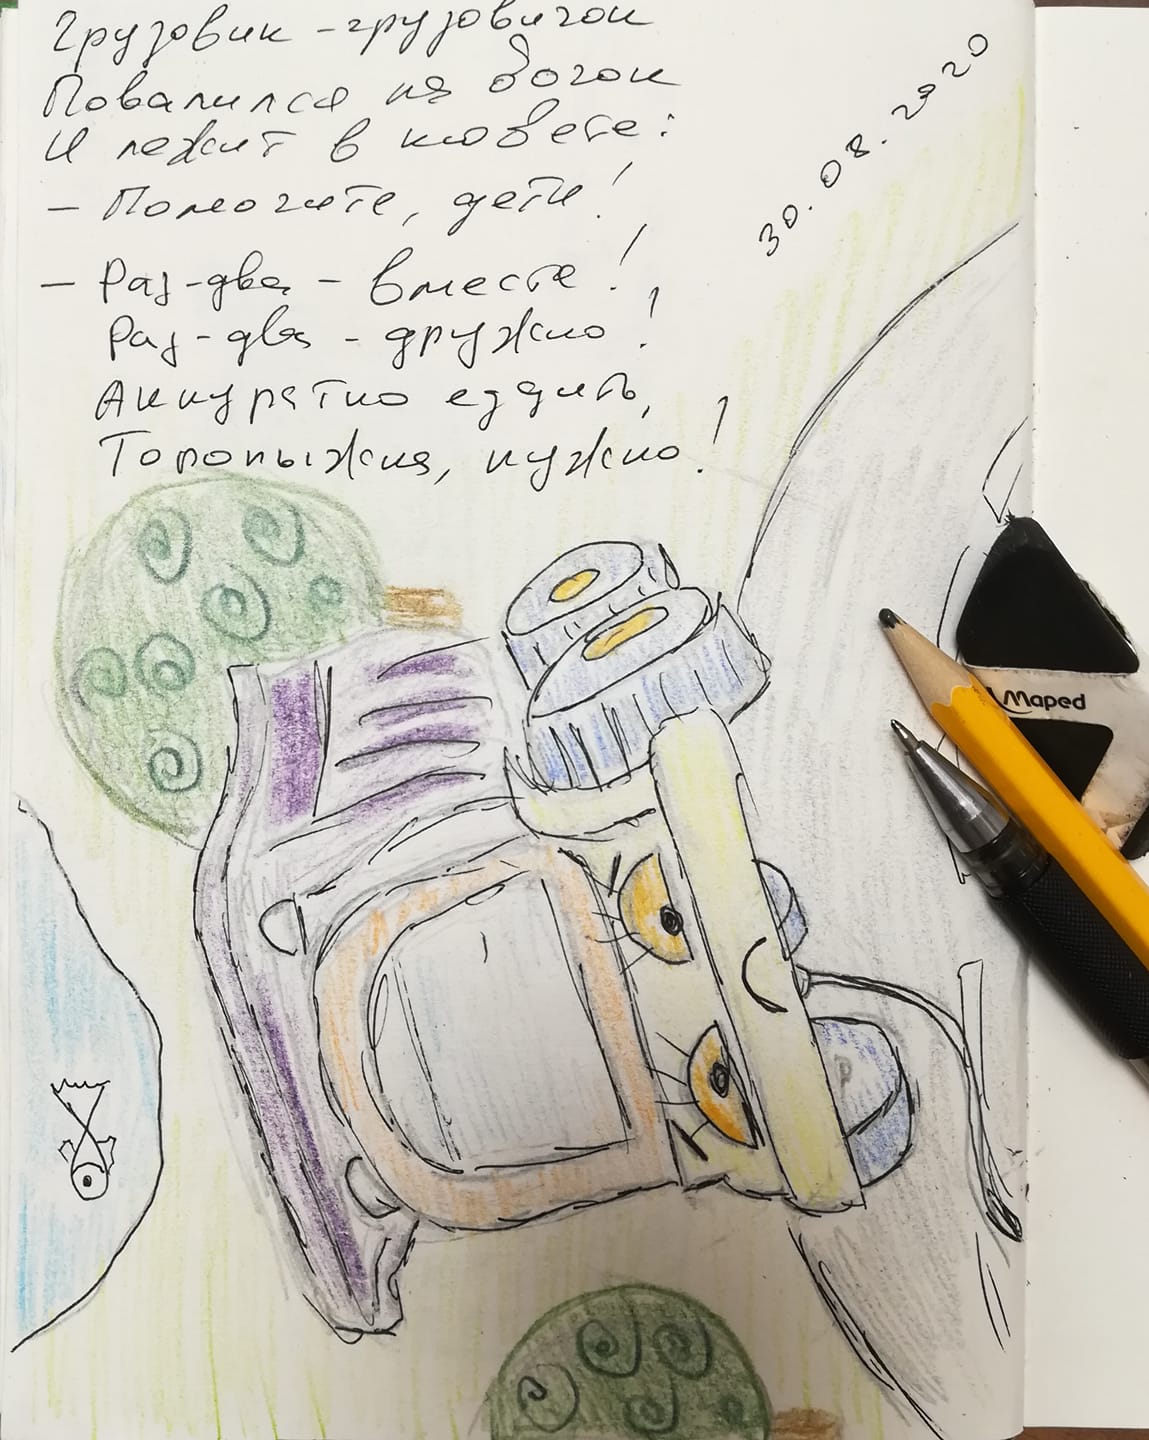 Грузовик - грузовичок
Повалился на бочок
И лежит в кювете:
- Помогите, дети!
- Раз-два - вместе!
Раз-два - дружно!
Аккуратно ездить,
Торопыжка, нужно!
30.08.2020
Maped